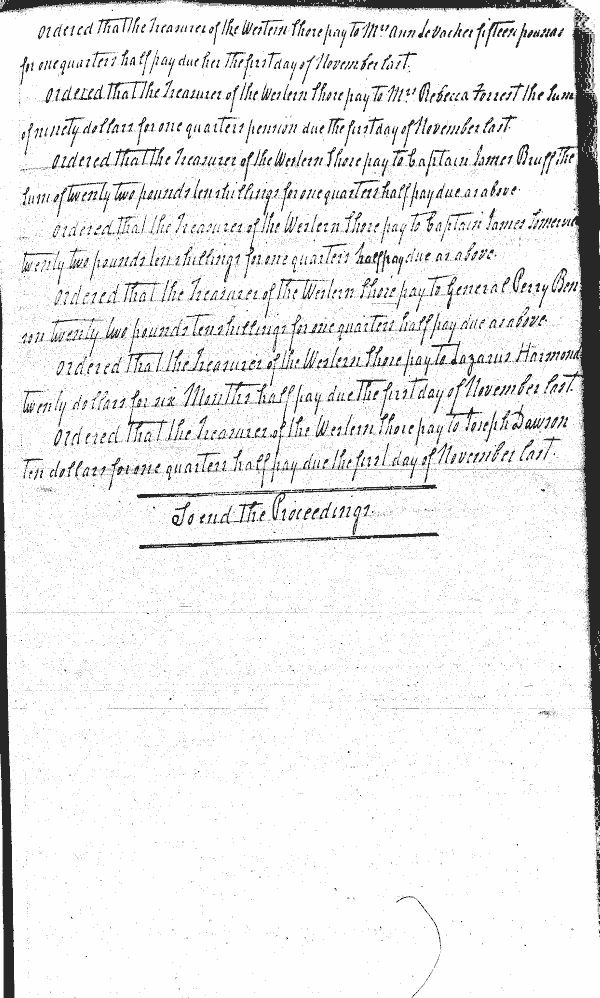 Ordered that the Treasurer of the Western Shore pay to Mrs Ann LeVacher fifteen pounds
for one quarters half pay due her the first day of November last.
Ordered that the Treasurer of the Western Shore pay to Mrs Rebecca Forrest the Sum
of ninety dollars for one quarters pension due the first day of November last.
Ordered that the Treasurer of the Western Shore pay to Captain James Bruff the
Sum of twenty two pounds ten shillings for one quarters half pay due as above.
Ordered that the Treasurer of the Western Shore pay to Captain James
twenty two pounds ten shillings for one quarters half pay due as above.
Ordered that the Treasurer of the Western Shore pay to General Perry Ben
son twenty two pounds ten shillings for one quarters half pay due as above
Ordered that the Treasurer of the Western Shore pay to Lazarus Harmond
twenty dollars for six Months half pay due the first day of November last.
Ordered that the Treasurer of the Western Shore pay to Joseph Dawson
Ten dollars for one quarters half pay due the first day of November last.
So end the Proceedings.